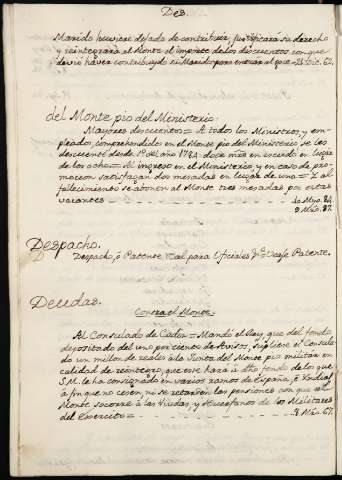 Des.
Marido huviere dejado de contribuir justificará su derecho
y reintegrará al Monte el importe de los descuentos con que
devió haver contribuydo su Marido para entrar al goce = 21 Dic. 62.
del Monte pio del Ministerio.
Mayores descuentos = A todos los Ministros, y em-
pleados, comprehendidos en el Monte pio del Ministerio se les
descuente desde 1º del año 1784 doce mrs en escudo en lugar
de los ocho = Al ingreso en el Ministerio y en caso de pro-
mocion satisfagan dos mesadas en lugar de una = Y al
fallecimiento se abonen al Monte tres mesadas por estas
vacantes
Despacho.
Despacho, ó Patente Real para Oficiales Vease Patente.
Deudas.
Contra el Monte.
Al Consulado de Cadiz = Mandó el Rey, que del fondo
depositado del uno por ciento de Avisos, supliese el Consula-
do un millon de reales á la Junta del Monte pio militar en
calidad de reintegro, que este hará á dho fondo de lo que
S.M. le ha consignado en varios ramos de España, é Yndias
á fin que no cesen, ni se retarden las pensiones con que el
Monte socorre á las Viudas, y Huerfanos de los Militares
del Exercito =